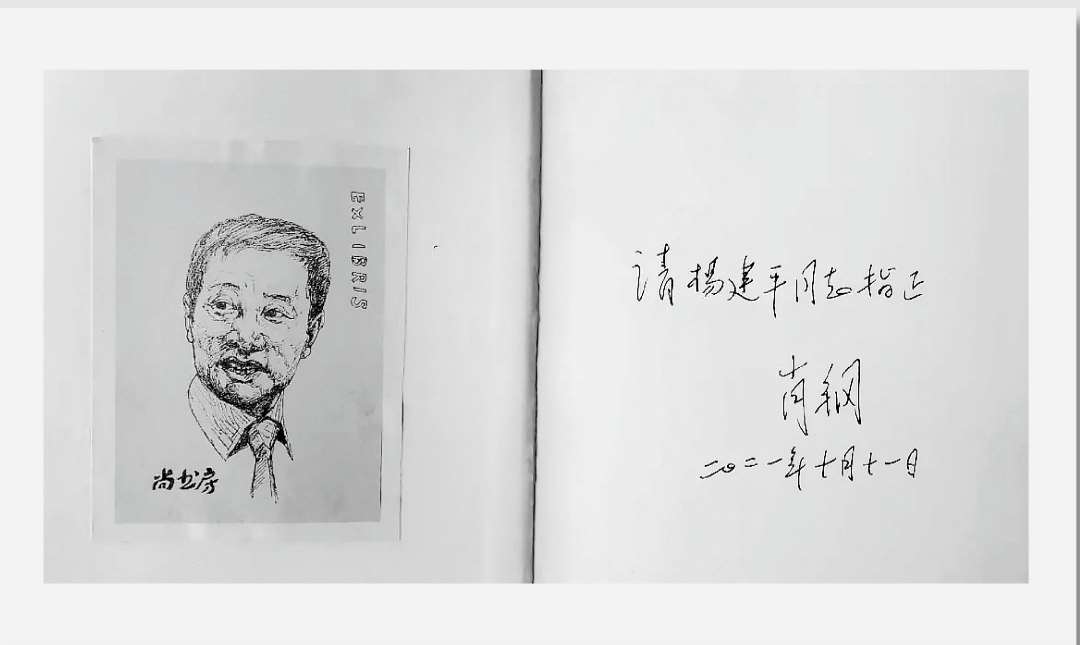 EXLIBRIS
尚书房
请杨建平同志指正
肖钢
二〇二一年十月十一日